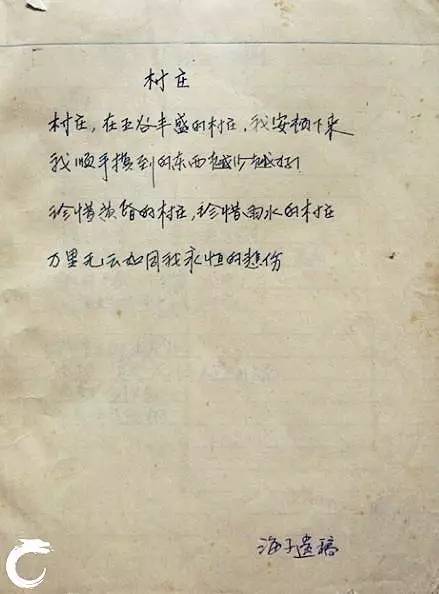 村庄
村庄，在五谷丰盛的村庄，我安顿下来
我顺手摸到的东西越少越好！
珍惜黄昏的村庄，珍惜雨水的村庄
万里无云如同我永恒的悲伤
海子遗稿